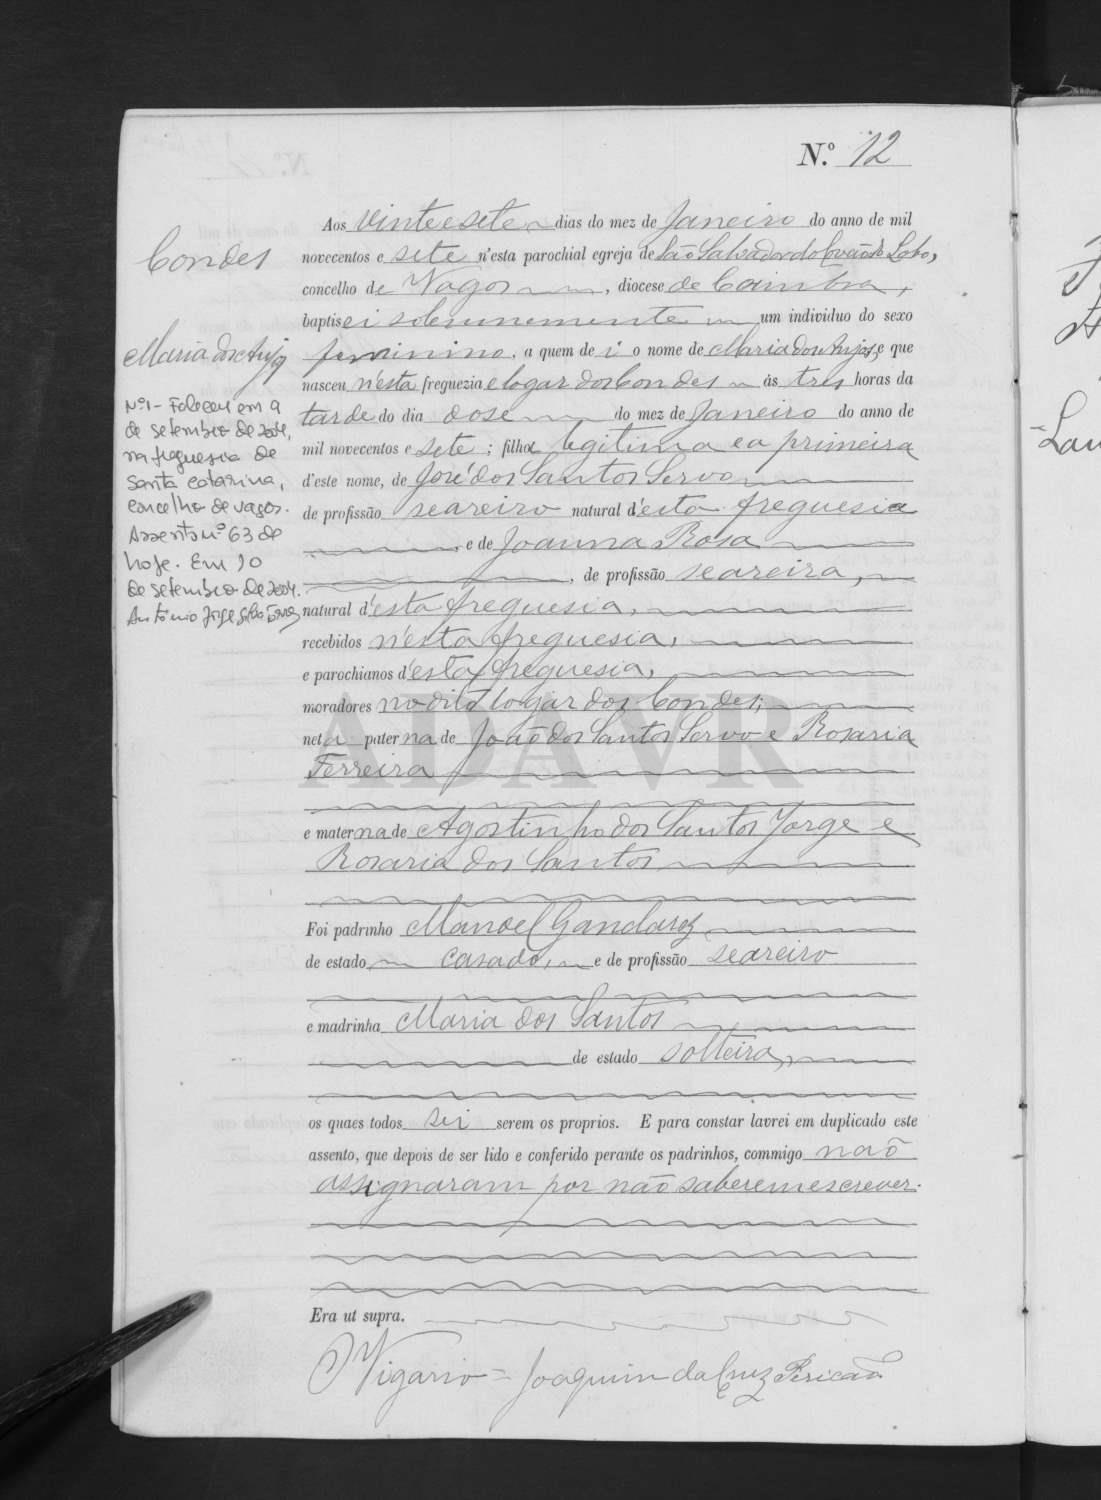 N.º 12
Aos vinte e sete dias do mez de Janeiro do anno de mil
novecentos e sete n'esta parochial egreja de São Salvador do Covão do Lobo,
concelho de Vagos, diocese de Coimbra,
baptisei solemnemente um individuo do sexo
feminino, a quem dei o nome de Maria dos Anjos, e que
nasceu n'esta freguezia e logar dos Condes ás tres horas da
tarde do dia dose do mez de Janeiro do anno de
mil novecentos e sete; filha legitima e a primeira
d'este nome, de José dos Santos Servo
de profissão seareiro natural d'esta freguesia
e de Joanna Rosa
, de profissão seareira,
natural d'esta freguesia,
recebidos n'esta freguesia,
e parochianos d'esta freguesia,
moradores no dito logar dos Condes;
neta paterna de João dos Santos Servo e Rosaria
Ferreira
e materna de Agostinho dos Santos Jorge e
Rosaria dos Santos
Foi padrinho Manoel Gandarez
de estado casado, e de profissão seareiro
e madrinha Maria dos Santos
de estado solteira,
os quaes todos sei serem os proprios. E para constar lavrei em duplicado este
assento, que depois de ser lido e conferido perante os padrinhos, commigo não
assignaram por não saberem escrever.
Era ut supra.
O Vigario = Joaquim da Cruz Pericão
Condes
Maria dos Anjos
Nº1 - Faleceu em 9
de setembro de 2004,
na freguesia de
Santa Catarina,
concelho de Vagos.
Assento nº 63 de
hoje. Em 10
de setembro de 2004.
António Jorge
ADAVR